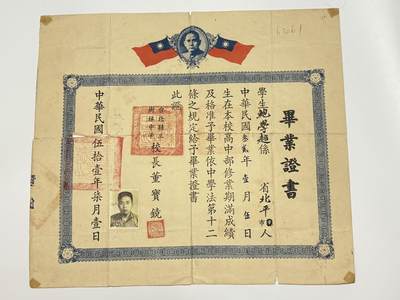 畢業證書
學生鮑學超係 省北平市人
中華民國叁貳年壹月伍日
生在本校高中部修業期滿成績
及格准予畢業依中學法第十二
條之規定給予畢業證書
此證
校長董寶鏡
中華民國伍拾壹年柒月壹日